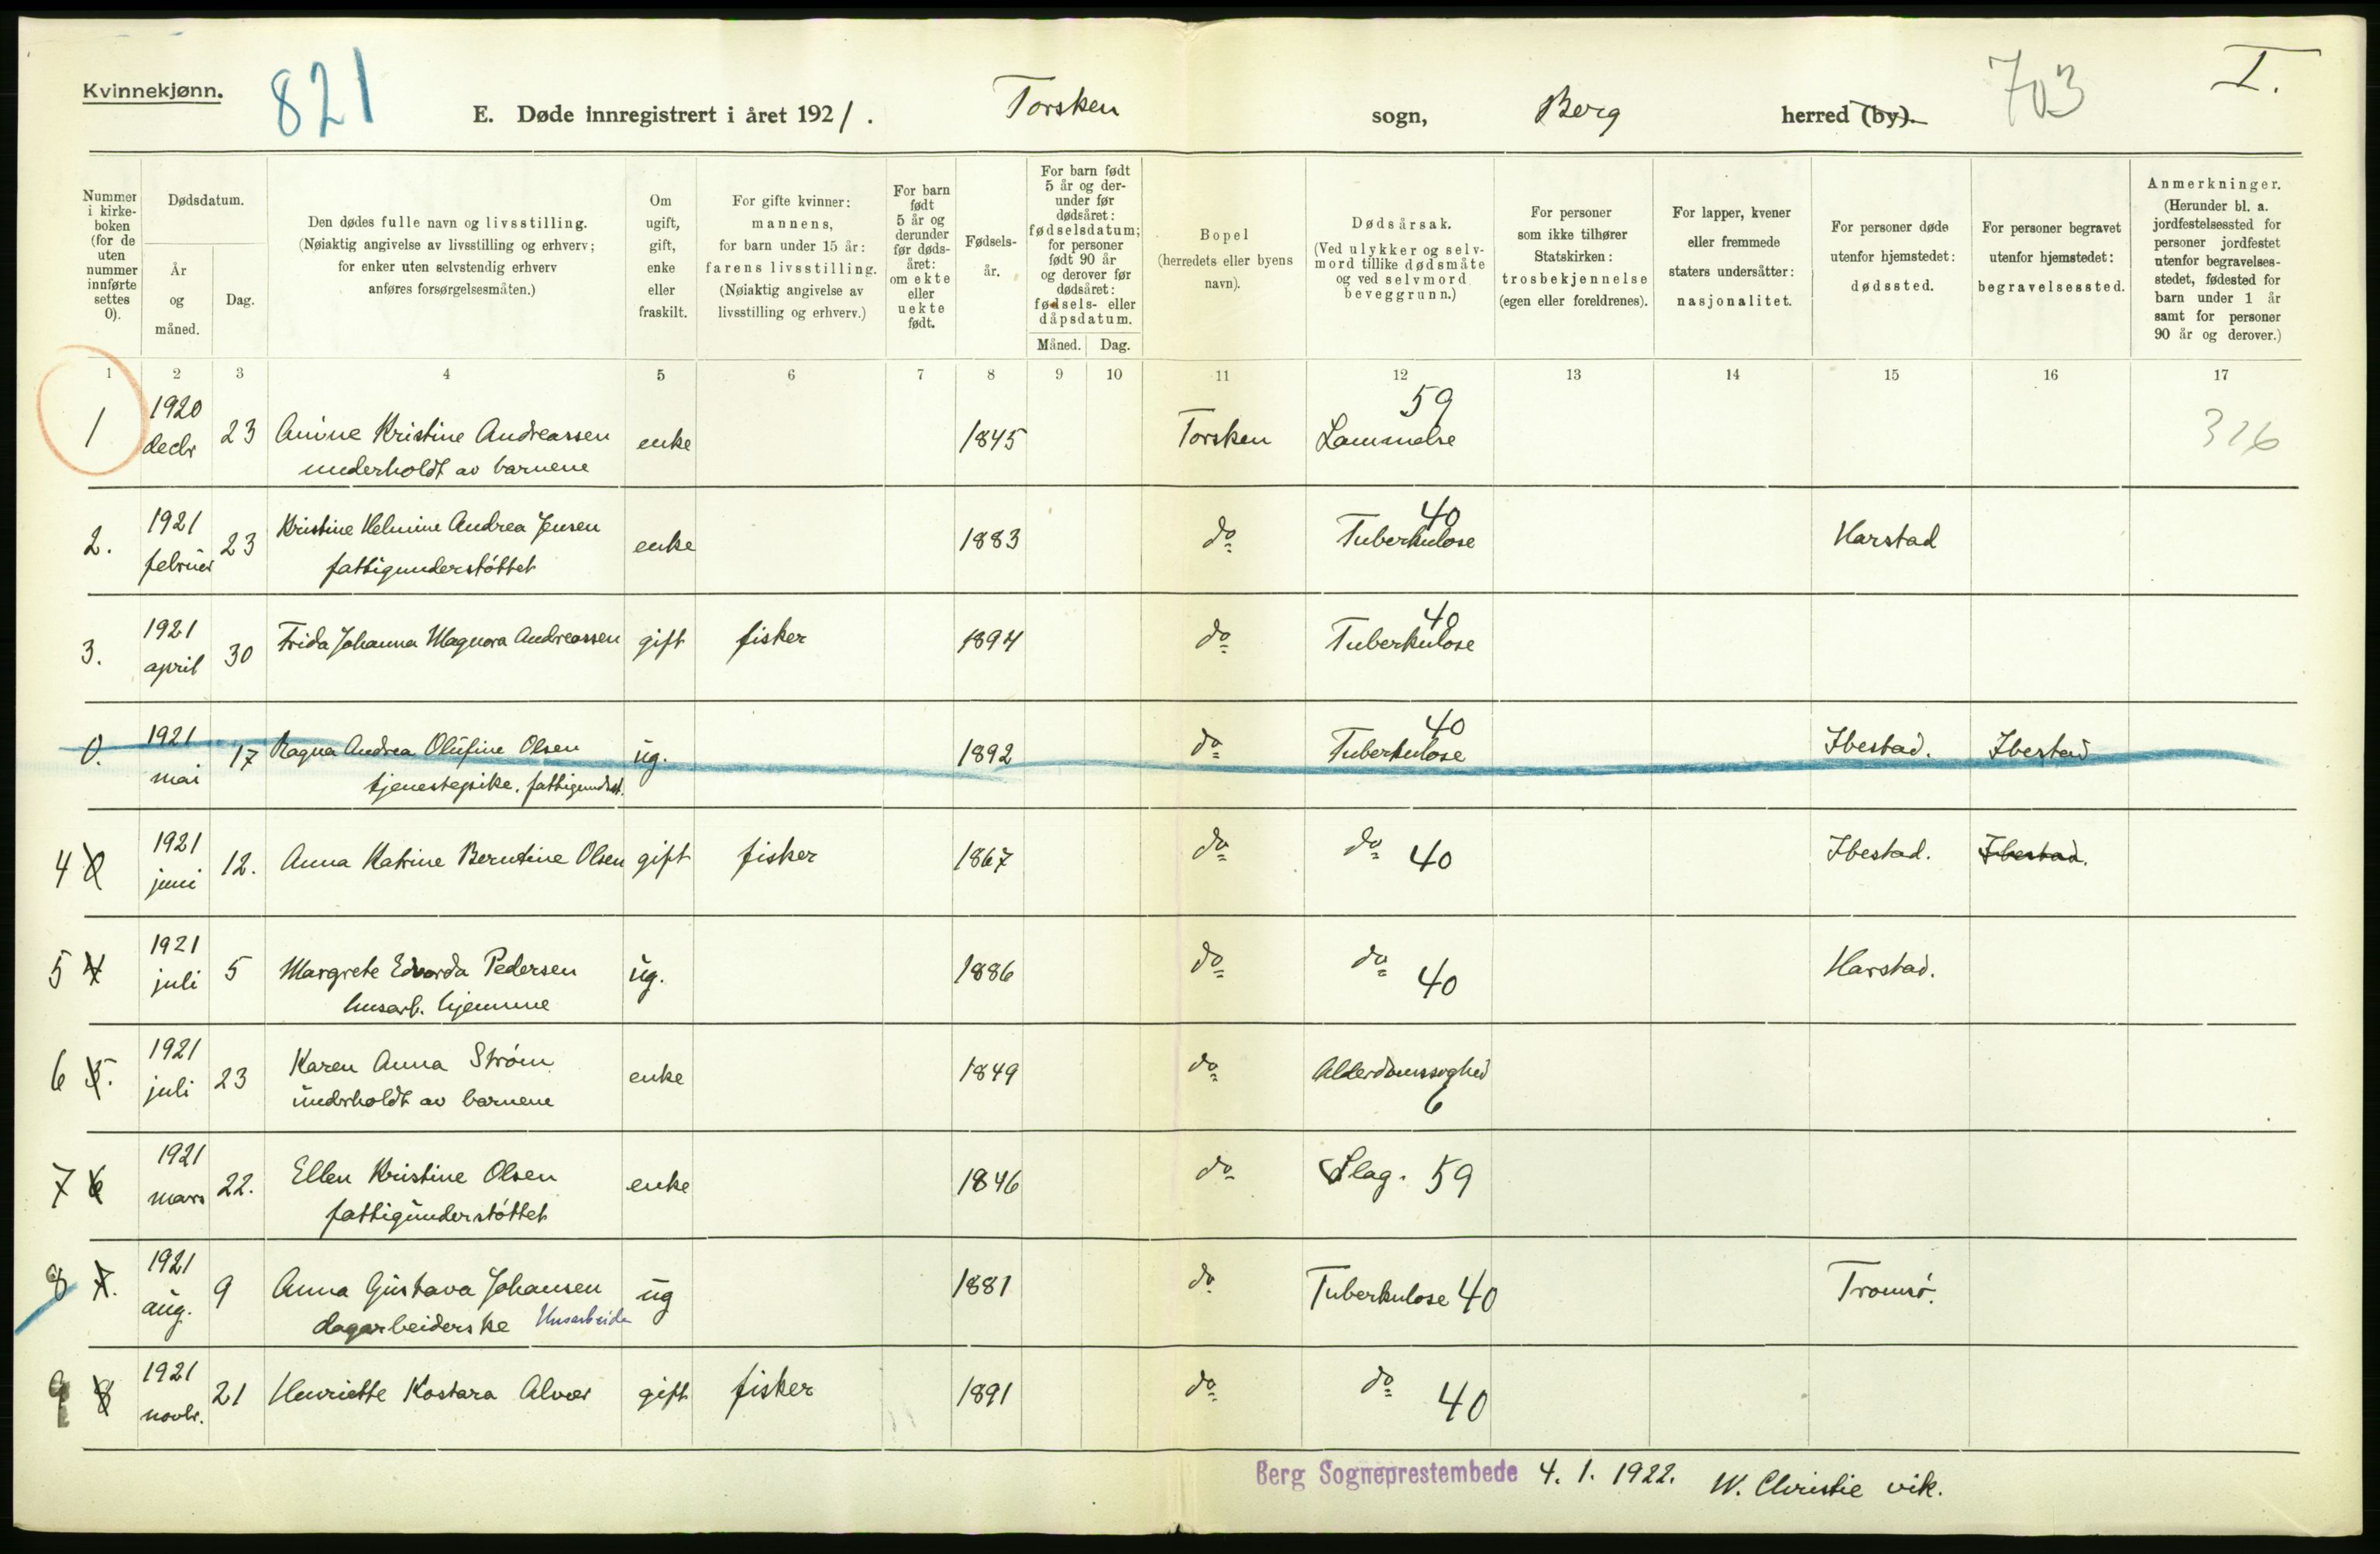 Kvinnekjønn.
821
E. Døde innregistrert i året 1921.
Torsken
sogn,
Berg
herred (by).
703
I.
Nummer i kirke-boken (for de uten nummer innførte settes 0).
Dødsdatum.
År og måned.
Dag.
Den dødes fulle navn og livsstilling.
(Nøiaktig angivelse av livsstilling og erhverv;
for enker uten selvstendig erhverv
anføres forsørgelsesmåten.)
Om ugift, gift, enke eller fraskilt.
For gifte kvinner:
mannens,
for barn under 15 år:
farens livsstilling.
(Nøiaktig angivelse av
livsstilling og erhverv.)
For barn født 5 år og derunder før døds-året: om ekte eller uekte født.
Fødsels-år.
For barn født 5 år og der-under før dødsåret: fødselsdatum; for personer født 90 år og derover før dødsåret: fødsels- eller dåpsdatum.
Måned.
Dag.
Bopel
(herredets eller byens
navn).
Dødsårsak.
(Ved ulykker og selv-
mord tillike dødsmåte
og ved selvmord
beveggrunn.)
For personer
som ikke tilhører
Statskirken:
trosbekjennelse
(egen eller foreldrenes).
For lapper, kvener
eller fremmede
staters undersåtter:
nasjonalitet.
For personer døde
utenfor hjemstedet:
dødssted.
For personer begravet
utenfor hjemstedet:
begravelsessted.
Anmerkninger.
(Herunder bl. a.
jordfestelsessted for
personer jordfestet
utenfor begravelses-
stedet, fødested for
barn under 1 år
samt for personer
90 år og derover.)
1 2 3 4 5 6 7 8 9 10 11 12 13 14 15 16 17
1 1920 decbr 23 Anine Kristine Andreassen enke 1845 Torsken Lammelse 59 326
underholdt av barnene
2. 1921 februar 23 Kristine Helmine Andrea Jensen enke 1883 do Tuberkulose 40 Harstad
fattigunderstøttet
3. 1921 april 30 Frida Johanna Magnora Andreassen gift fisker 1894 do Tuberkulose 40
0. 1921 mai 17 Ragna Andrea Olufine Olsen ug. 1892 do Tuberkulose 40 Ibestad. Ibestad
tjenestepike, fattigundst.
4 0 1921 juni 12. Anna Katrine Berntine Olsen gift fisker 1867 do do 40 Ibestad. Ibestad.
5 4 1921 juli 5 Margrete Edvarda Pedersen ug. 1886 do do 40 Harstad.
husarb. hjemme
6 5. 1921 juli 23 Karen Anna Strøm enke 1849 do Alderdomssvaghed 6
underholdt av barnene
7 6 1921 mars 22. Ellen Kristine Olsen enke 1846 do Slag. 59
fattigunderstøttet
8 7. 1921 aug. 9 Anna Gustava Johansen ug 1881 do Tuberkulose 40 Tromsø.
dagarbeiderske Husarbeide
9 8 1921 novbr. 21 Henriette Kostara Alvær gift fisker 1891 do do 40
Berg Sogneprestembede 4. 1. 1922. W. Christie vik.